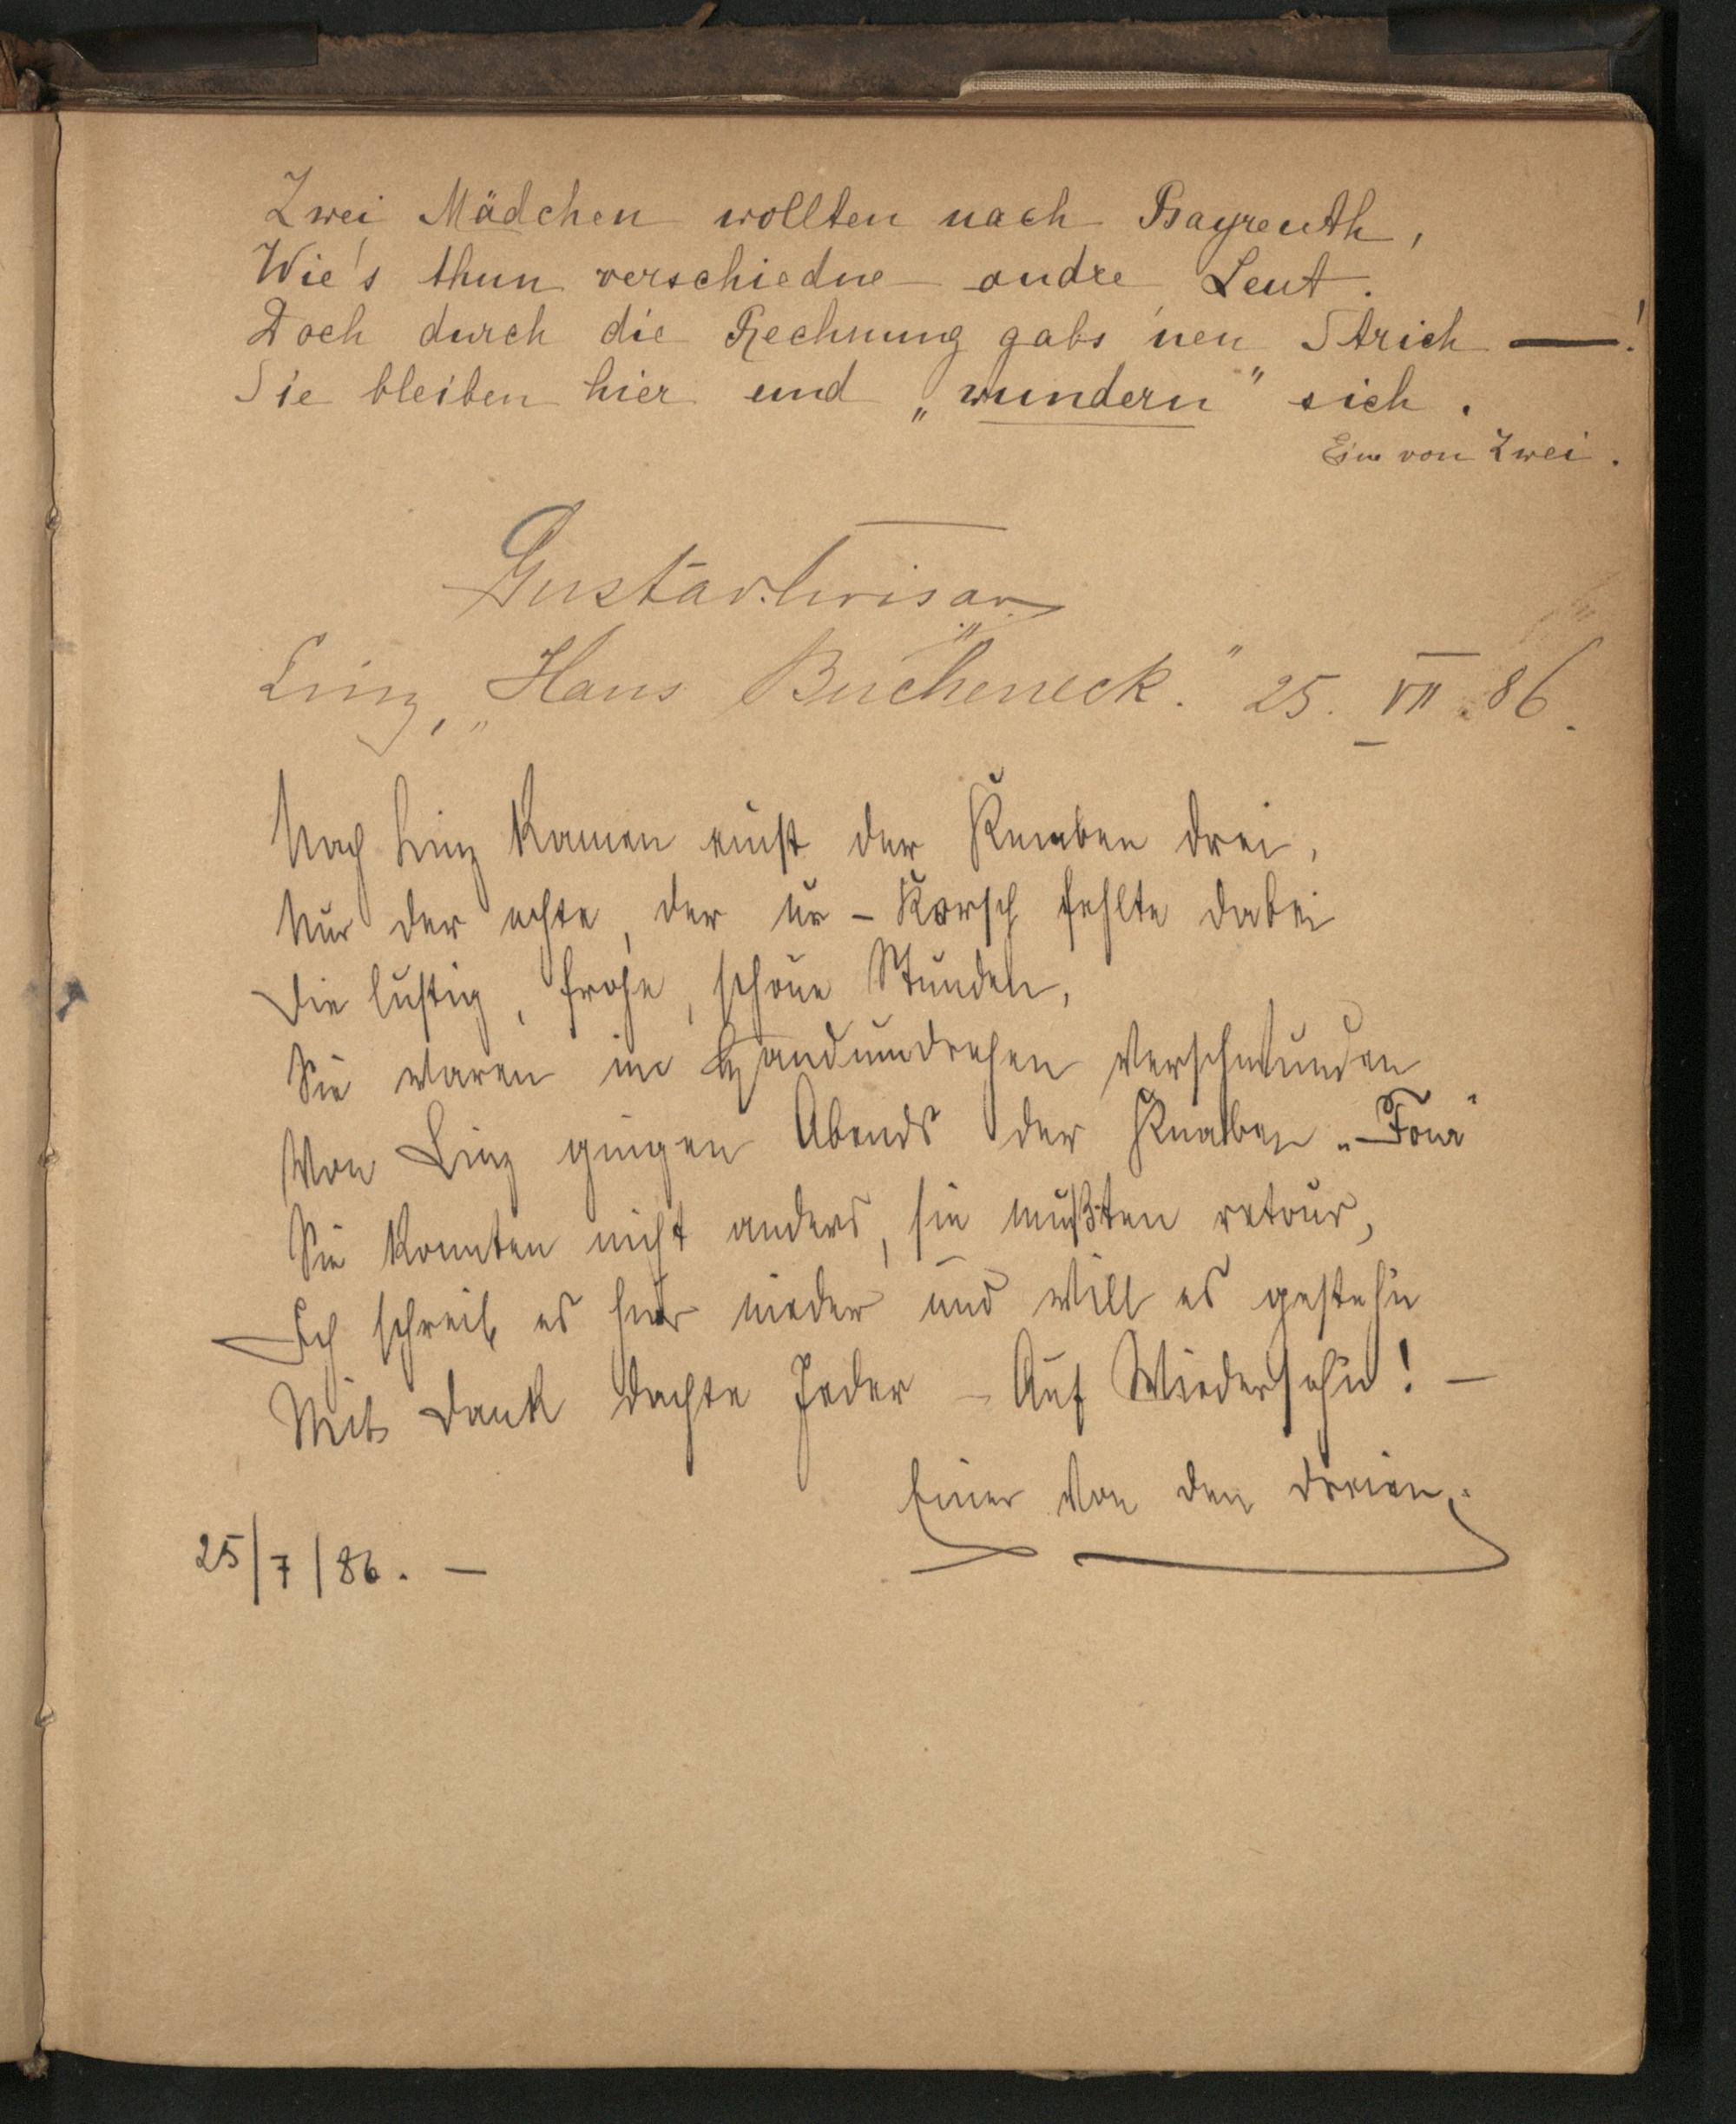 Zwei Mädchen wollten nach Bayreuth,
Wie's thun verschiedne andre Leut.
Doch durch die Rechnung gabs 'nen Strich —!
Sie bleiben hier und „wundern" sich.
Eine von Zwei.
Linz, „Haus Bucheneck." 25. VII. 86.
Nach Linz kamen einst der Knaben drei,
Nur der echte, der ur-Korsch fehlte dabei
Die lustig, frohe, schöne Stunden,
Sie waren im Handumdrehen verschwunden
Von Linz gingen Abends der Knaben „Four"
Sie konnten nicht anders, sie mußten retour,
Ich schreib es hier nieder und will es gestehn
Mit Dank dachte Jeder – Auf Wiedersehn! –
Einer von den dreien.
25/7/86. –